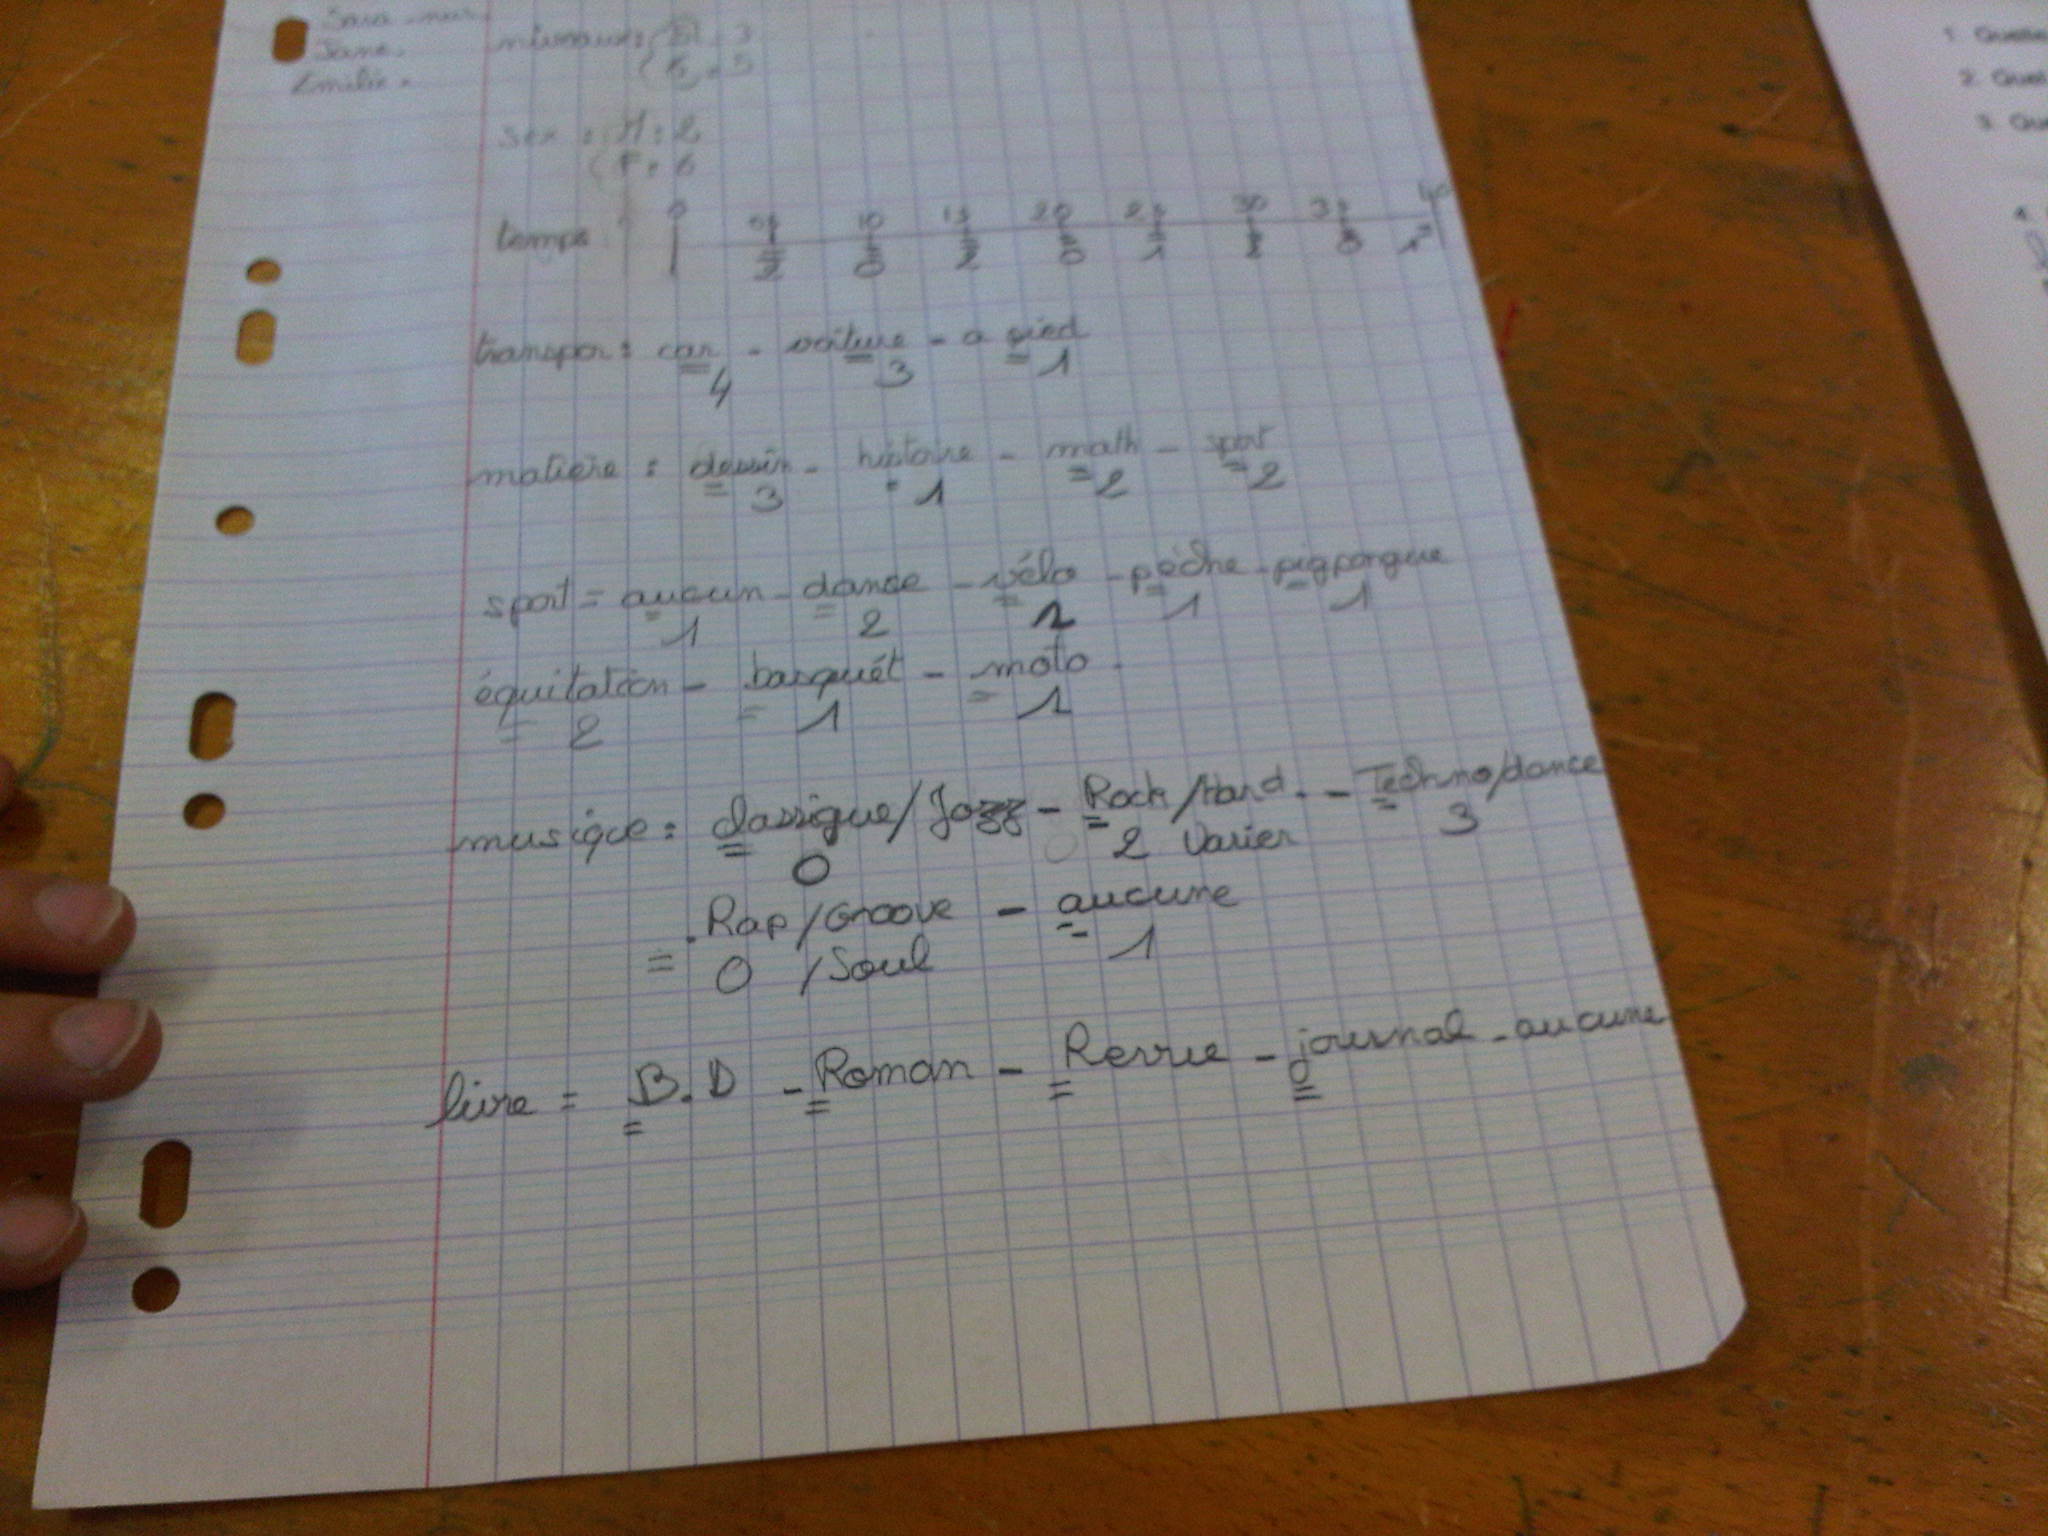 Jane.
Emilie.
niveaux : 3
5
sex : H : 2
F : 6
temps : 0 05 10 15 20 25 30 35 40
2 0 2 0 1 2 0 1
transpor : car - voiture - a pied
4 3 1
matière : dessin - histoire - math - sport
3 1 2 2
sport = aucun - danse - vélo - pèche - pigpongue
1 2 1 1
équitation - basquét - moto -
2 1 1
musique : classique/Jazz - Rock/Hard - Techno/dance
0 2 Varier 3
Rap/Groove - aucune
0 /Soul 1
livre = B.D - Roman - Revue - journal - aucune
0
1. Quelle
2. Quel
3. Que
4.